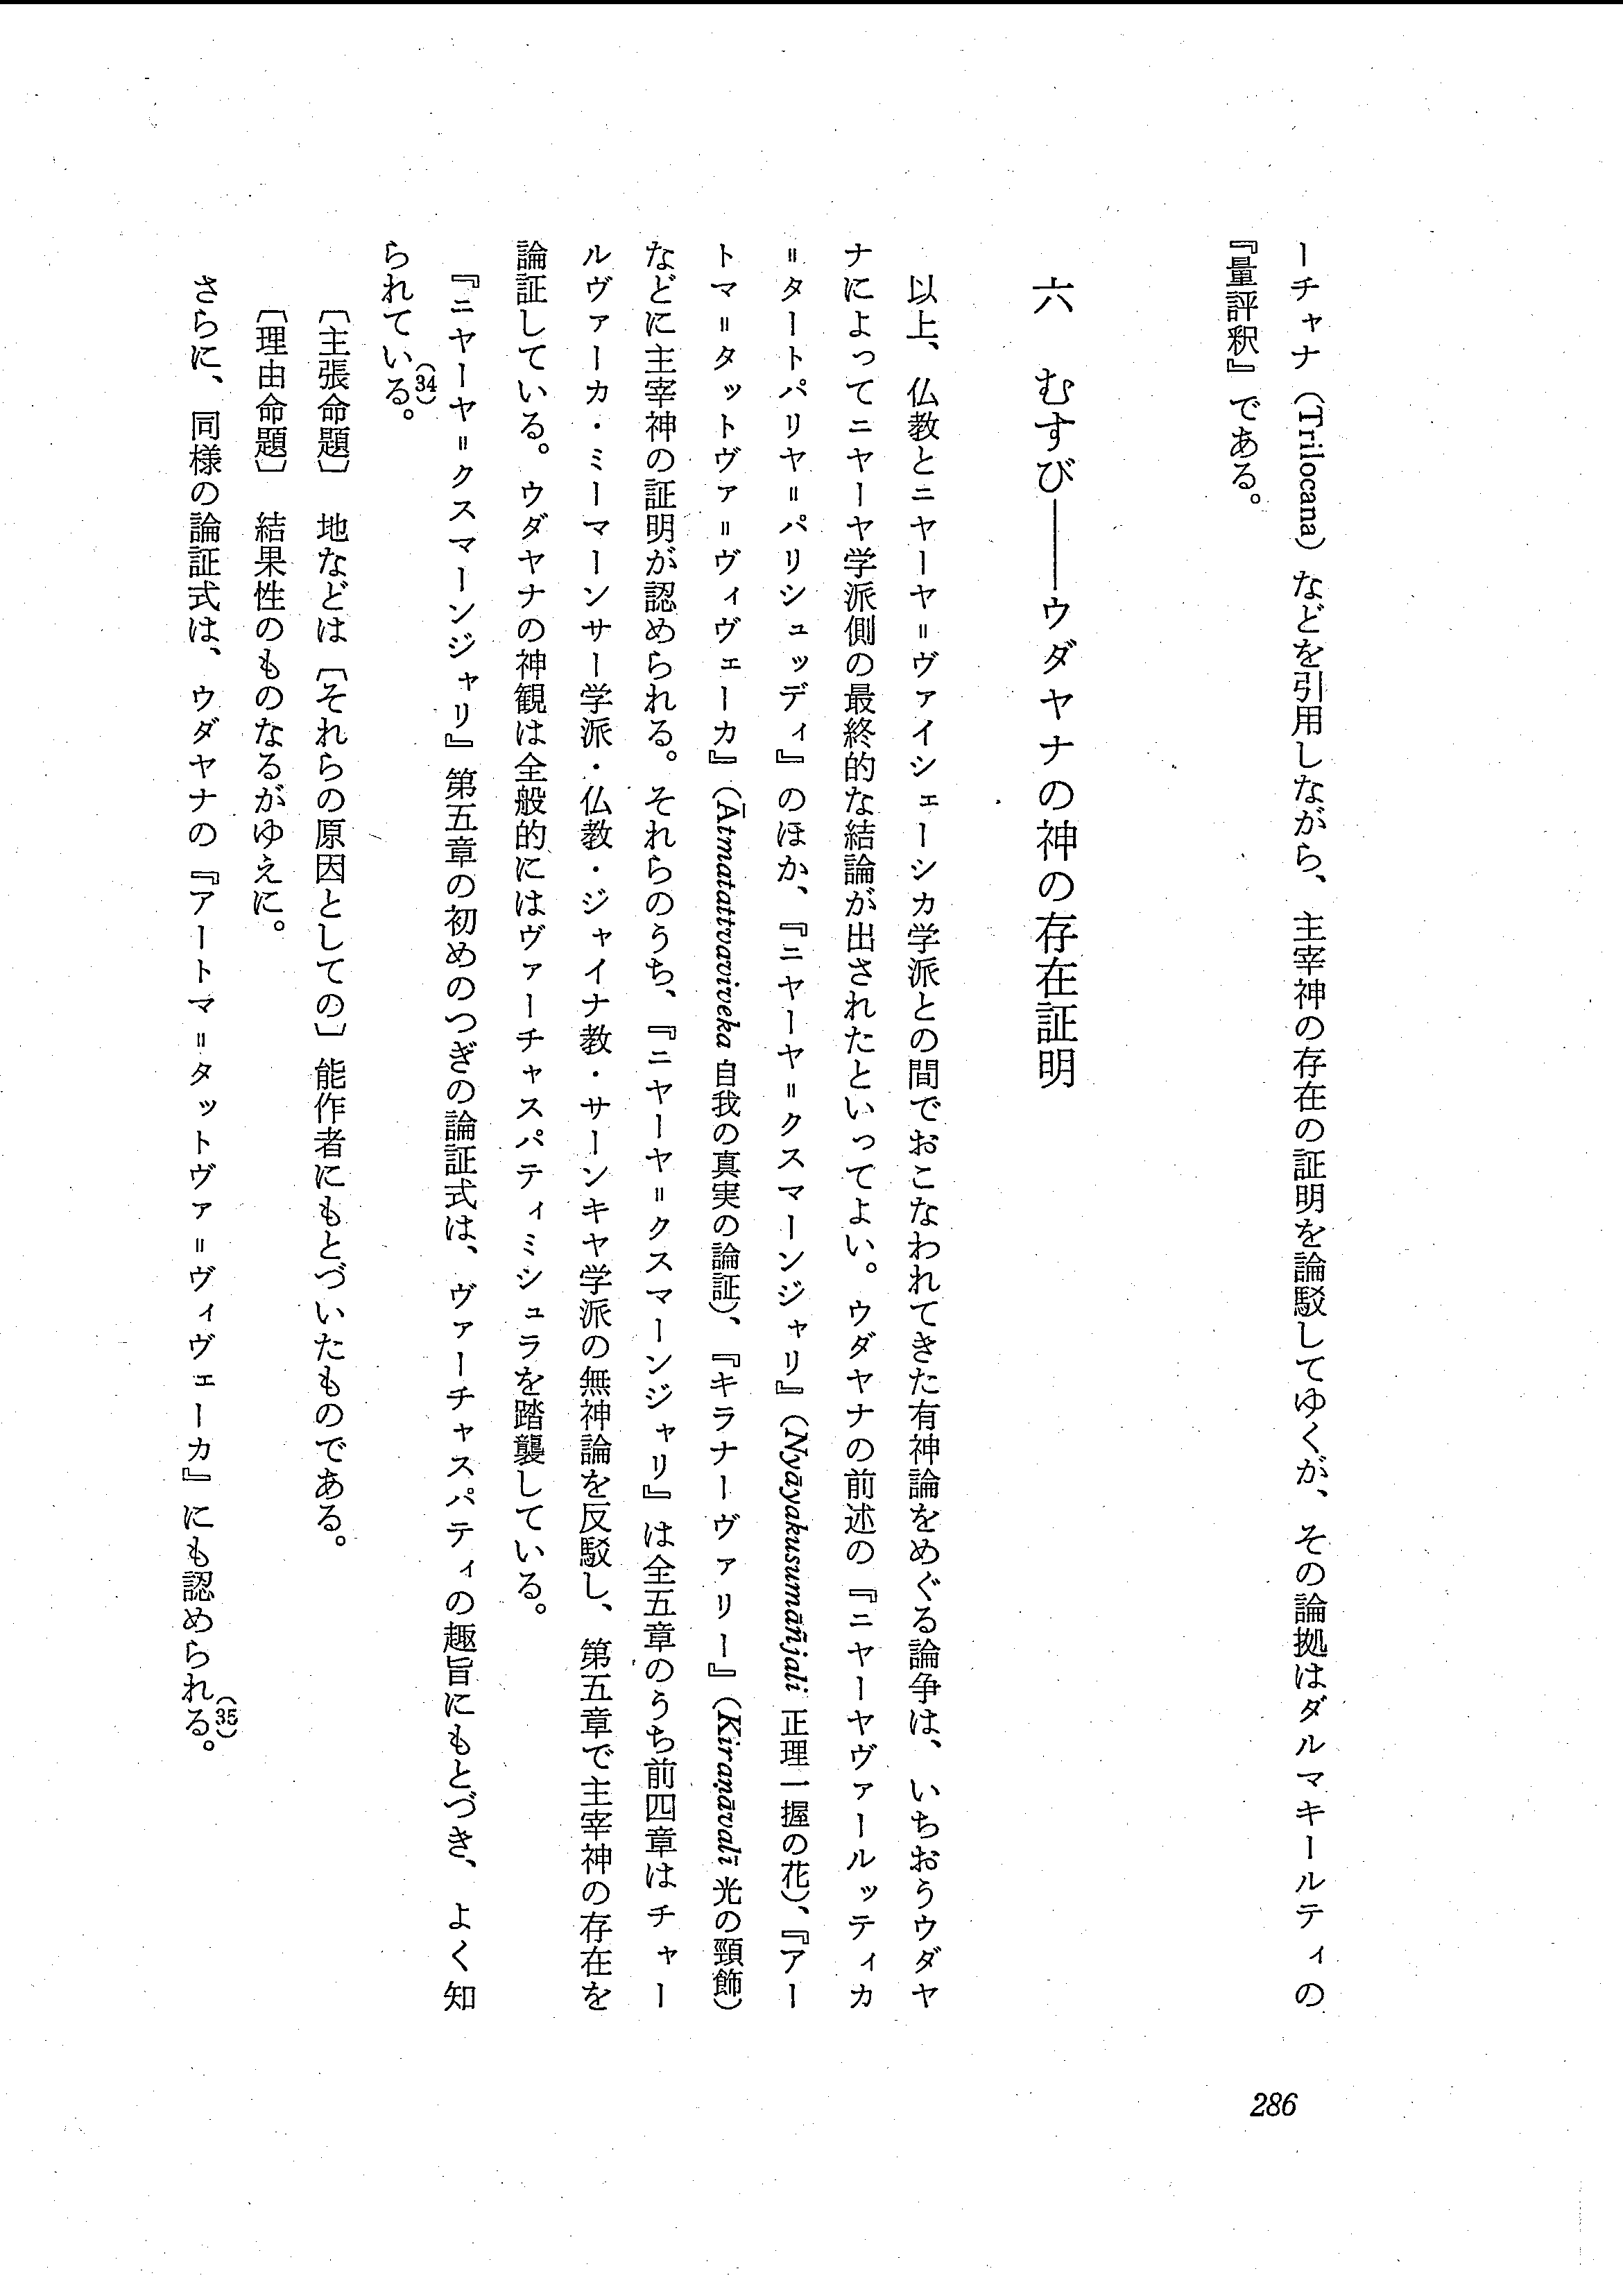 ーチャナ（Trilocana）などを引用しながら、主宰神の存在の証明を論駁してゆくが、その論拠はダルマキールティの
『量評釈』である。
六　むすび――ウダヤナの神の存在証明
以上、仏教とニヤーヤ＝ヴァイシェーシカ学派との間でおこなわれてきた有神論をめぐる論争は、いちおうウダヤ
ナによってニヤーヤ学派側の最終的な結論が出されたといってよい。ウダヤナの前述の『ニヤーヤヴァールッティカ
＝タートパリヤ＝パリシュッディ』のほか、『ニヤーヤ＝クスマーンジャリ』（Nyāyakusumāñjali 正理一握の花）、『アー
トマ＝タットヴァ＝ヴィヴェーカ』（Ātmatattvaviveka 自我の真実の論証）、『キラナーヴァリー』（Kiraṇāvalī 光の頸飾）
などに主宰神の証明が認められる。それらのうち、『ニヤーヤ＝クスマーンジャリ』は全五章のうち前四章はチャー
ルヴァーカ・ミーマーンサー学派・仏教・ジャイナ教・サーンキヤ学派の無神論を反駁し、第五章で主宰神の存在を
論証している。ウダヤナの神観は全般的にはヴァーチャスパティミシュラを踏襲している。
『ニヤーヤ＝クスマーンジャリ』第五章の初めのつぎの論証式は、ヴァーチャスパティの趣旨にもとづき、よく知
られている。(34)
〔主張命題〕　地などは〔それらの原因としての〕能作者にもとづいたものである。
〔理由命題〕　結果性のものなるがゆえに。
さらに、同様の論証式は、ウダヤナの『アートマ＝タットヴァ＝ヴィヴェーカ』にも認められる。(35)
286